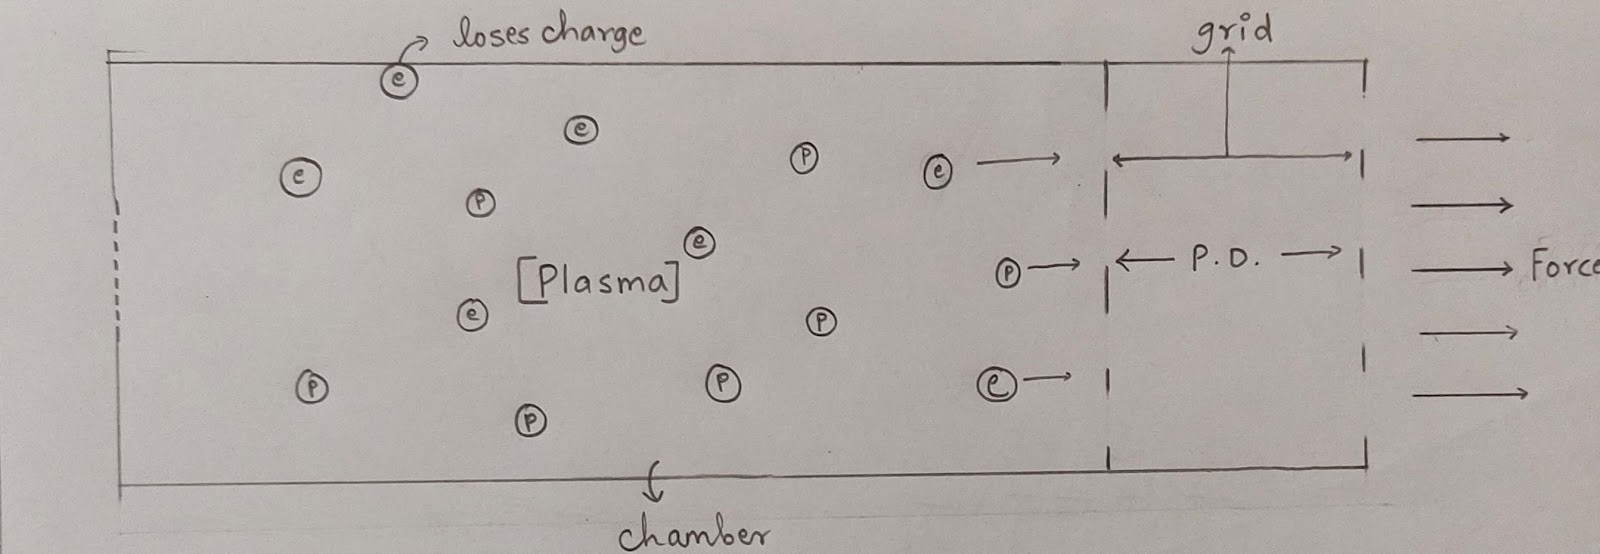 loses charge
grid
e
e
e
P
e
P
e
[Plasma]
P
← P.D. →
Force
e
P
P
P
e
P
chamber